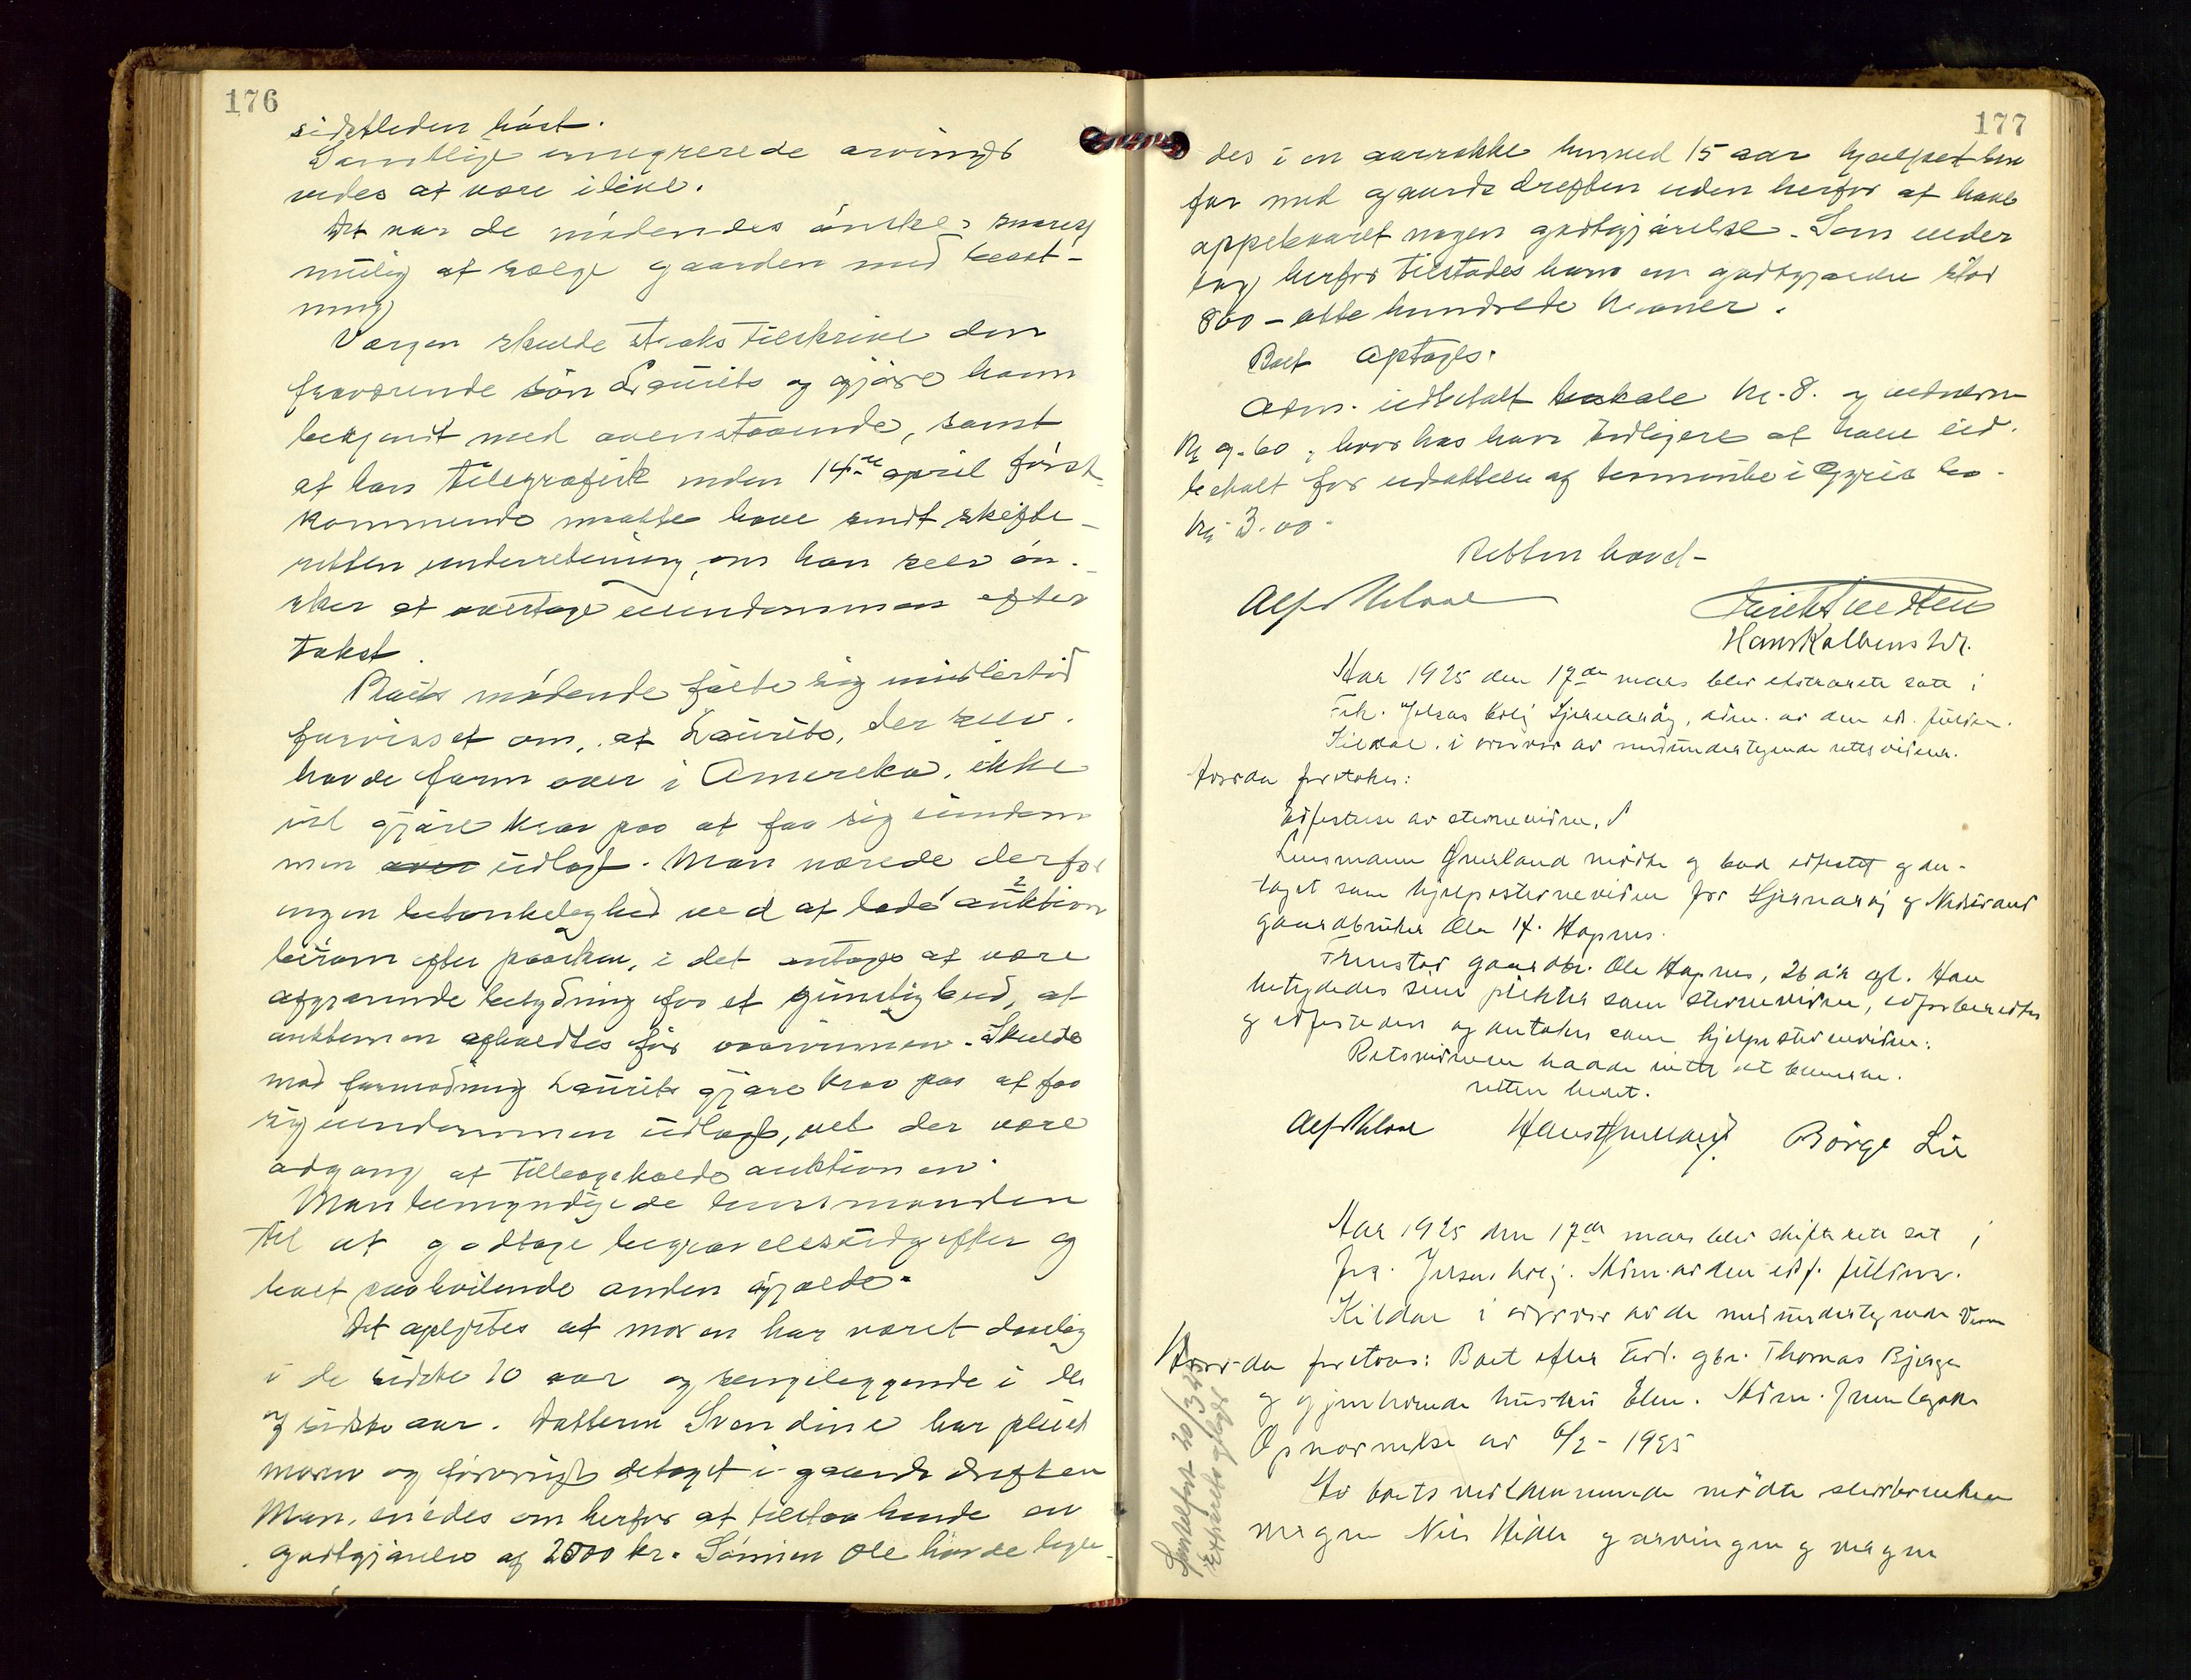 176
sidstleden høst.
Samtlige emigrerede arvinger
vides at være ilive.
Det var de mødendes ønske, snarest
mulig at sælge gaarden med besæt-
ning
Værgen skulde straks tilskrive den
fraværende søn Laurits og gjøre ham
bekjendt med ovenstaaende, samt
at han telegrafisk inden 14de april først-
kommende maatte have sendt skifte-
retten underretning, om han selv øn-
sker at overtage eiendommen efter
takst.
Boets mødende følte sig imidlertid
forvisset om, at Laurits, der selv
havde farm over i Amerika, ikke
vil gjøre krav paa at faa sig eiendom
men over udlagt. Man nærede derfor
ingen betænkelighed ved at lade 2 auktion
beram efter paasken, i det antages at være
afgjørende betydning for et gunstig bud, at
auktionen afholdtes før vaaronnen. Skulde
mod formodning Laurits gjøre krav paa at faa
sig eiendommen udlagt, vil der være
adgang at tilbagekalde auktionen.
Man bemyndigede lensmanden
til at godtage begravelsesudgifter og
boet paahvilende anden gjæld.
Det oplystes at moren har været daarlig
i de sidste 10 aar og sengeliggende i de
sidste aar. Datteren Svendine har pleiet
moren og forøvrigt detaget i gaards driften
Man enedes om herfor at tilstaa hende en
godtgjørelse af 2000 kr. Sønnen Ole havde lige-
177
des i en aarrække henved 15 aar hjælpet
far med gaards driften uden herfor at have
oppebaaret nogen godtgjørelse. Som veder
lag herfor tilstodes ham en godtgjørelse stor
800 – otte hundrede kroner.
Boet optages.
Adm. udbetalt lokale kr. 8. og
kr 9.60, hvorhos han tidligere at have ud-
betalt for udsættelse af termin i
kr 3.00.
Retten hævet –
Alf Kildal
Hans Kolbenstvt.
Aar 1925 den 17de mars blev ekstraret sat i
Jelsas tinglag Sjernarøy, adm. av den ed. fuldm.
Kildal i overvær av medundertegnede rettsvidner.
Hvorda foretokes:
Edfestelse av stevnevidne.
Lensmann Øverland møtte og bad edfestet og an-
taget som hjelpestevnevidne for Sjernarøy og Nedstrand
gaardbruker Ole H. Hapnes.
Fremstod gaardbr. Ole Hapnes, 26 år gl. Han
betydedes sine plikter som stevnevidne, edsforberedtes
og edfestedes og antokes som hjelpestevnevidne.
Retsvidnene hadde intet at bemerke.
retten hevet.
Alf Kildal Hans Øverland Børge Lie
Aar 1925 den 17de mars blev skifterett sat i
Adm. av den edf. fuldm.
Kildal i overvær av de medundertegnede vidner
Hvorda foretoes: Boet efter
og gjenlevende hustru Elen. Adm. fremlagde
Opnævnelse av 6/2 – 1925
Av boets vedkommende mødte
vergen Nils og arvingen og vergen